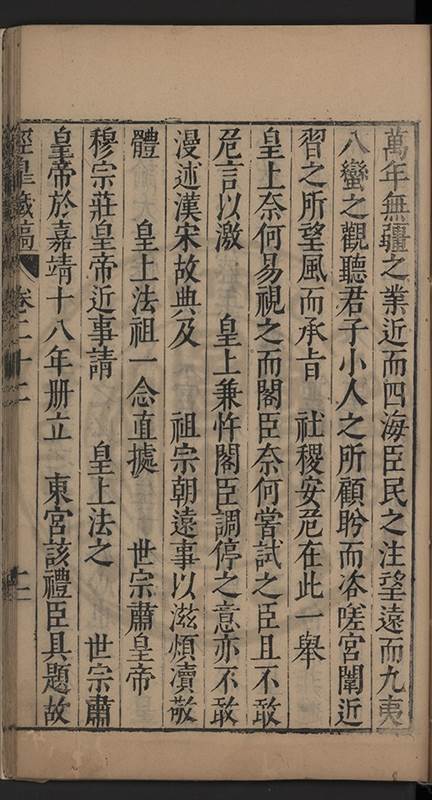 萬年無疆之業近而四海臣民之注望遠而九夷
八蠻之觀聽君子小人之所顧盻而咨嗟宮闈近
習之所望風而承旨 社稷安危在此一舉
皇上奈何易視之而閣臣奈何嘗試之臣且不敢
危言以激 皇上兼忤閣臣調停之意亦不敢
漫述漢宋故典及 祖宗朝遠事以滋煩瀆敬
體 皇上法祖一念直據 世宗肅皇帝
穆宗莊皇帝近事請 皇上法之 世宗肅
皇帝於嘉靖十八年冊立 東宮該禮臣具題故
卷二十二